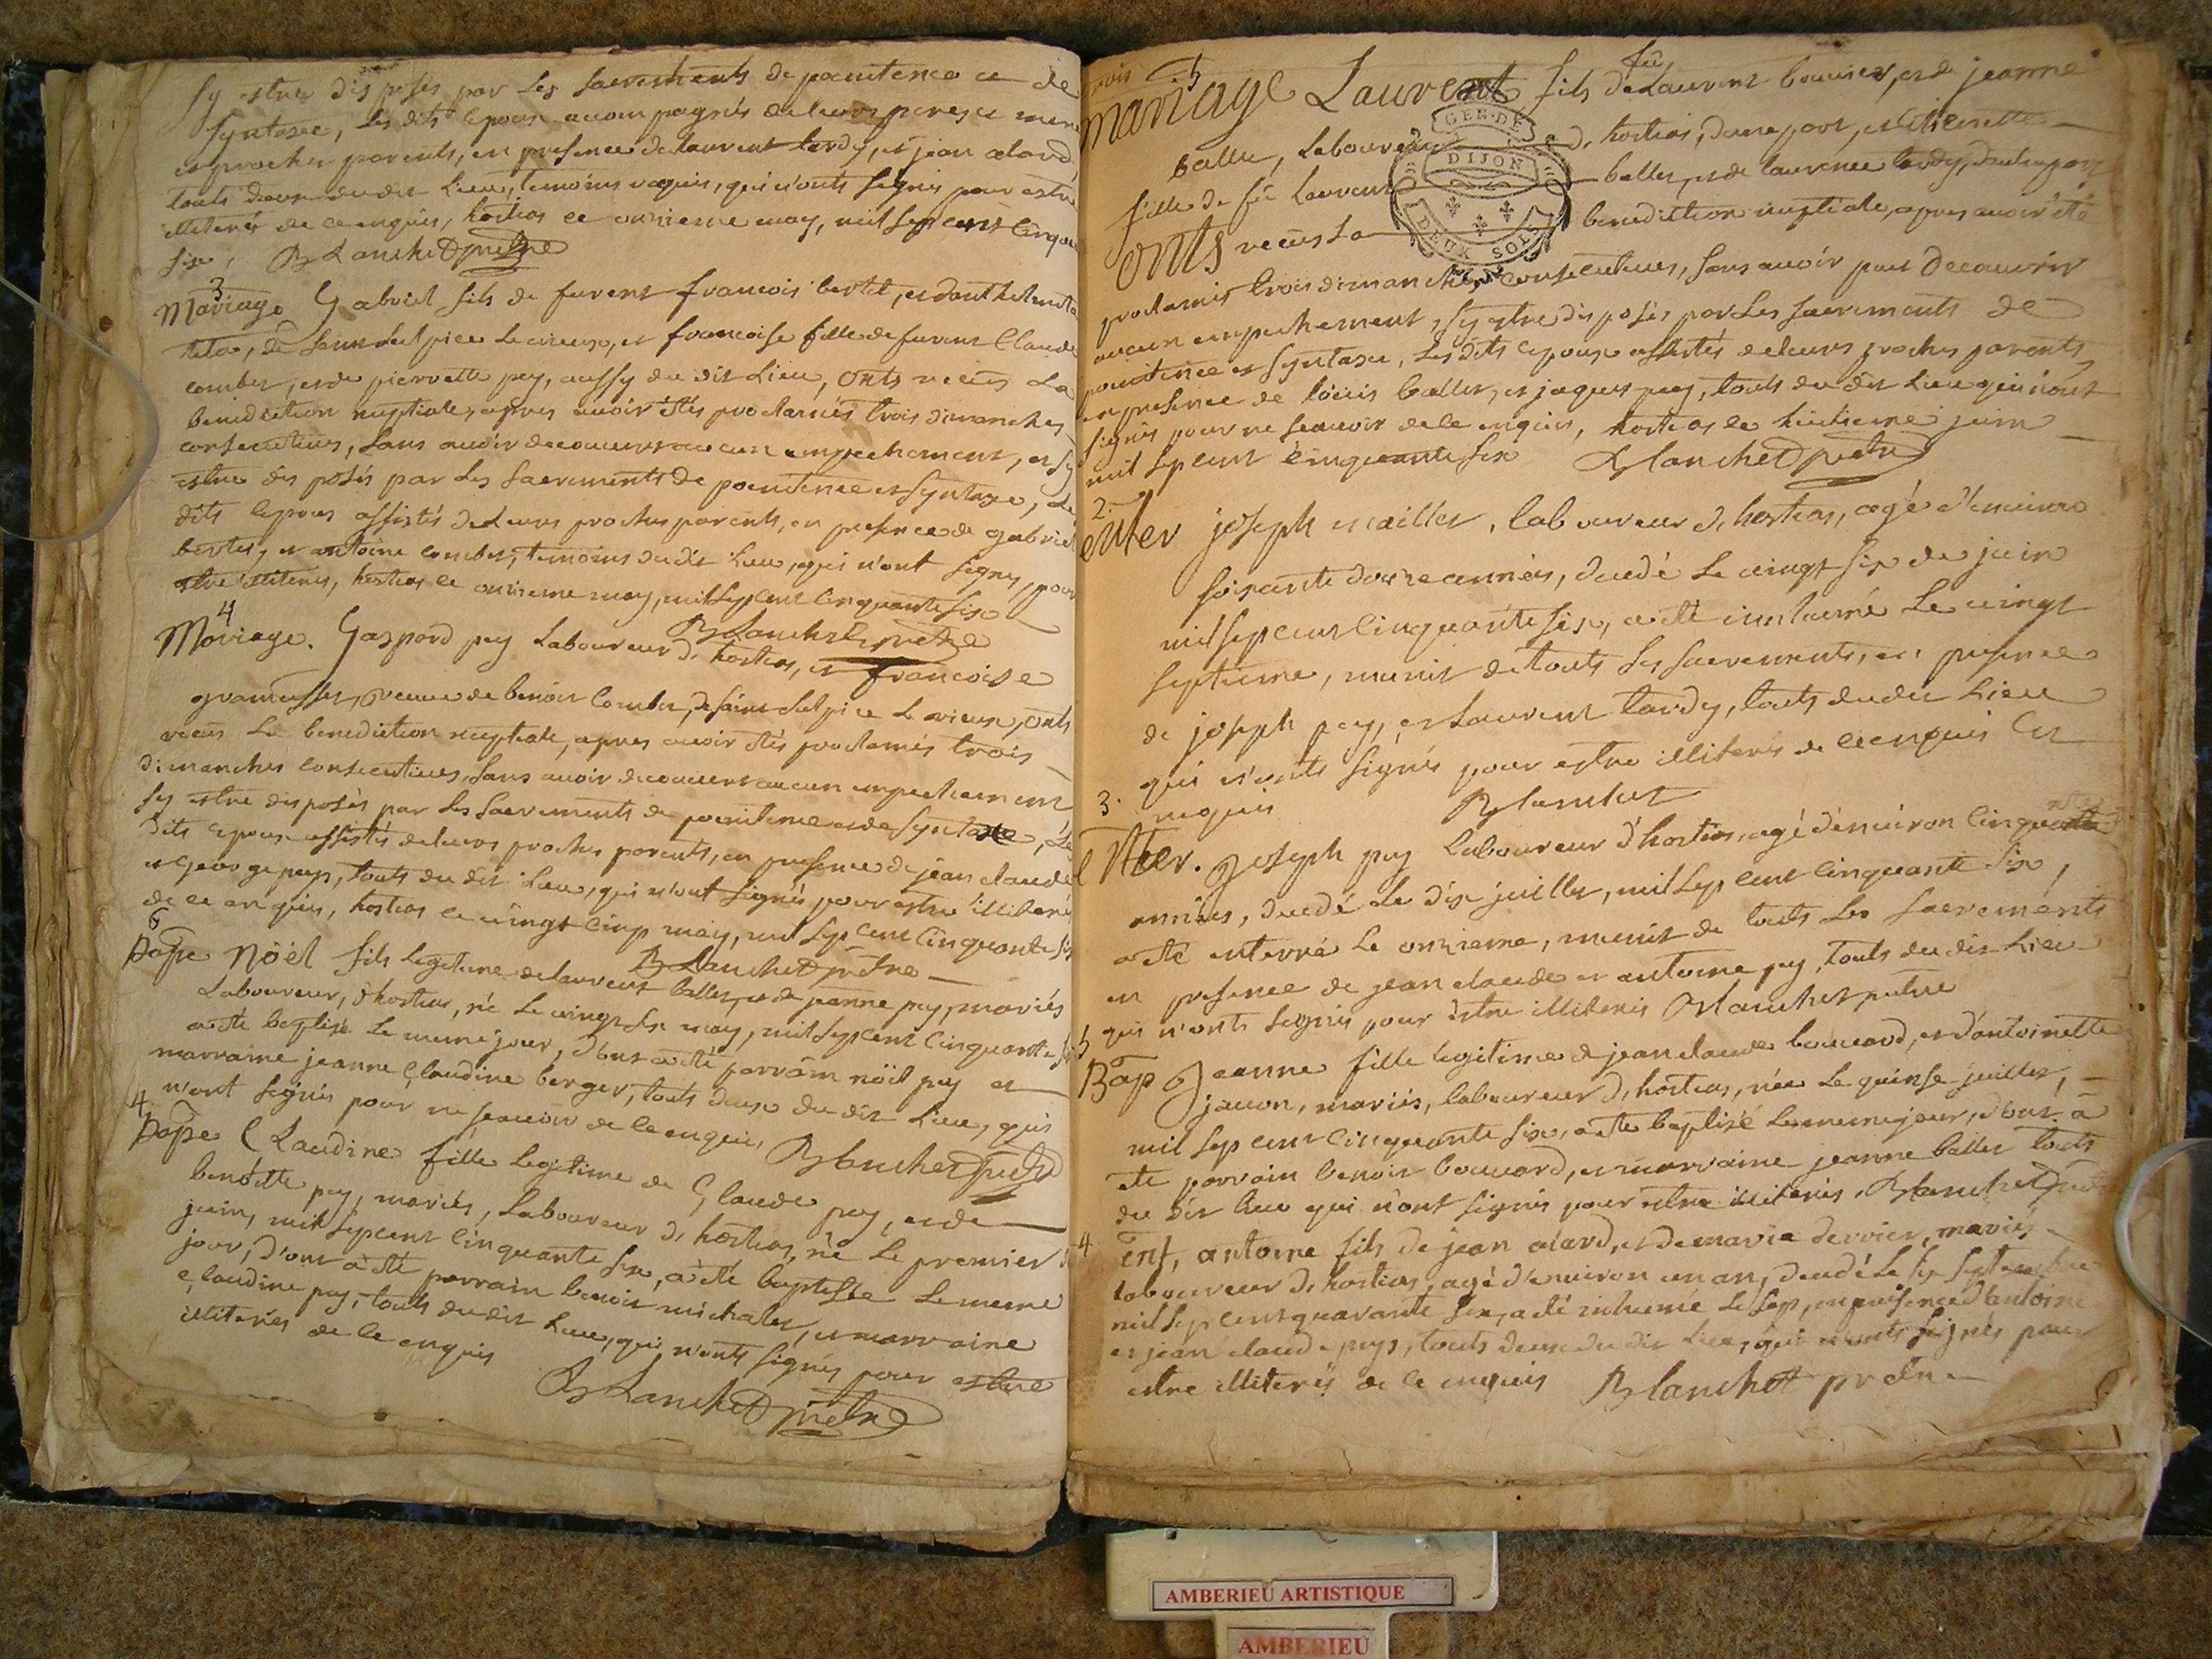 sy estre disposés par les sacrements de poenitence et de
syntaxee, les dits epoux accompagnés de leurs peres et mere
et proches parents, en presence de laurent tardy, et jean alard
touts deux du dit lieu, temoins requis, qui n'onts signés pour estre
illiterés de ce enquis, hostias ce onzieme may, mil sept cent cinquante
six, Blanchet pretre
3
Mariage Gabriel fils de furent francois bertet, et d'anthelmette
de saint sulpice le vieux, et francoise fille de furent Claude
combet, et de pierrette pey, aussy du dit lieu, onts recüs la
benediction nuptiale, apres avoir étés proclamés trois dimanches
consecutives, sans avoir decouvert aucun empechement, et sy
estre disposés par les sacrements de poenitence et syntaxe, les
dits epoux assistés de leurs proches parents, en presence de gabriel
bertet, et antoine combet, temoins du dit lieu, qui n'ont signés, pour
estre illiterés, hostias le onzieme may, mil sept cent cinquante six
Blanchet pretre
4
Mariage. Gaspard pey laboureur d'hostias, et francoise
veuve de benoit Combet, de saint sulpice le vieux, onts
recüs la benediction nuptiale, apres avoir étés proclamés trois
dimanches consecutives, sans avoir decouvert aucun empechement
sy estre disposés par les sacrements de poenitence et de syntaxe, les
dits epoux assistés de leurs proches parents, en presence de jean claude
et George pey, touts du dit lieu, qui n'ont signés pour estre illiterés
de ce enquis, hostias le vingt cinq may, mil sept cent cinquante six
Blanchet pretre
6
Bapt Nöel fils legitime de laurent ballet, et de jeanne pey, mariés
laboureur, d'hostias, né le vingt six may, mil sept cent cinquante six
a été baptisé le meme jour, d'ont a été parrain nöel pey et
marraine jeanne Claudine berger, touts deux du dit lieu, qui
n'ont signés pour ne scavoir de ce enquis, Blanchet pretre
4
Bapt Claudine fille legitime de Claude pey, et de
benoitte pey, mariés, laboureur d'hostias, né le premier
juin, mil sept cent cinquante six, a été baptissé le meme
jour, d'ont a été parrain benoit michalet, et marraine
claudine pey, touts du dit lieu, qui n'onts signés pour estre
illiterés de ce enquis
Blanchet pretre
5
Mariage Laurent fils de fû laurent bouvier, et de jeanne
ballet, laboureur d'hostias, d'une part, et etiennette
fille de fû laurent ballet, et de laurence tardy, d'autre part
onts recüs la benediction nuptiale, apres avoir été
proclamés trois dimanches consecutives, sans avoir pus decouvrir
aucun empechement, sy estre disposés par les sacrements de
poenitence et syntaxee, les dits epoux assistés de leurs proches parents
en presence de loüis ballet, et jaques pey, touts du dit lieu qui n'ont
signés pour ne scavoir de ce enquis, hostias le huitieme juin
mil sept cent cinquante six Blanchet pretre
GEN. DE
DIJON
DEUX SOLS
2.
enter joseph maillet, laboureur d'hostias, agé d'environ
soixante douze années, decedé le vingt six de juin
mil sept cent cinquante six, a été inhumé le vingt
septieme, munit de touts ses sacrements, en presence
de joseph pey, et laurent tardy, touts du dit lieu
qui n'onts signés pour estre illiterés de ce enquis et
requis Blanchet
3.
Enter. Joseph pey laboureur d'hostias, agé d'environ cinquante
années, decedé le dix juillet, mil sept cent cinquante six,
a été enterré le onzieme, munit de touts les sacrements
en presence de jean claude et antoine pey, touts du dit lieu
qui n'onts signés pour estre illiterés Blanchet pretre
5
Bap Jeanne fille legitime de jean claude bouvard, et d'antoinette
mariés, laboureur d'hostias, née le quinse juillet,
mil sept cent cinquante six, a été baptisé le meme jour, d'ont a
été parrain benoit bouvard, et marraine jeanne ballet touts
du dit lieu qui n'ont signés pour estre illiterés, Blanchet pretre
4
Ent, antoine fils de jean alard, et de maria dervier, mariés
laboureur d'hostias, agé d'environ un an, decedé le six septembre
mil sept cent quarante six, a été inhumé le sept, en presence d'antoine
et jean claude pey, touts deux du dit lieu, qui n'onts signés pour
estre illiterés de ce enquis Blanchet pretre
AMBERIEU ARTISTIQUE
AMBERIEU